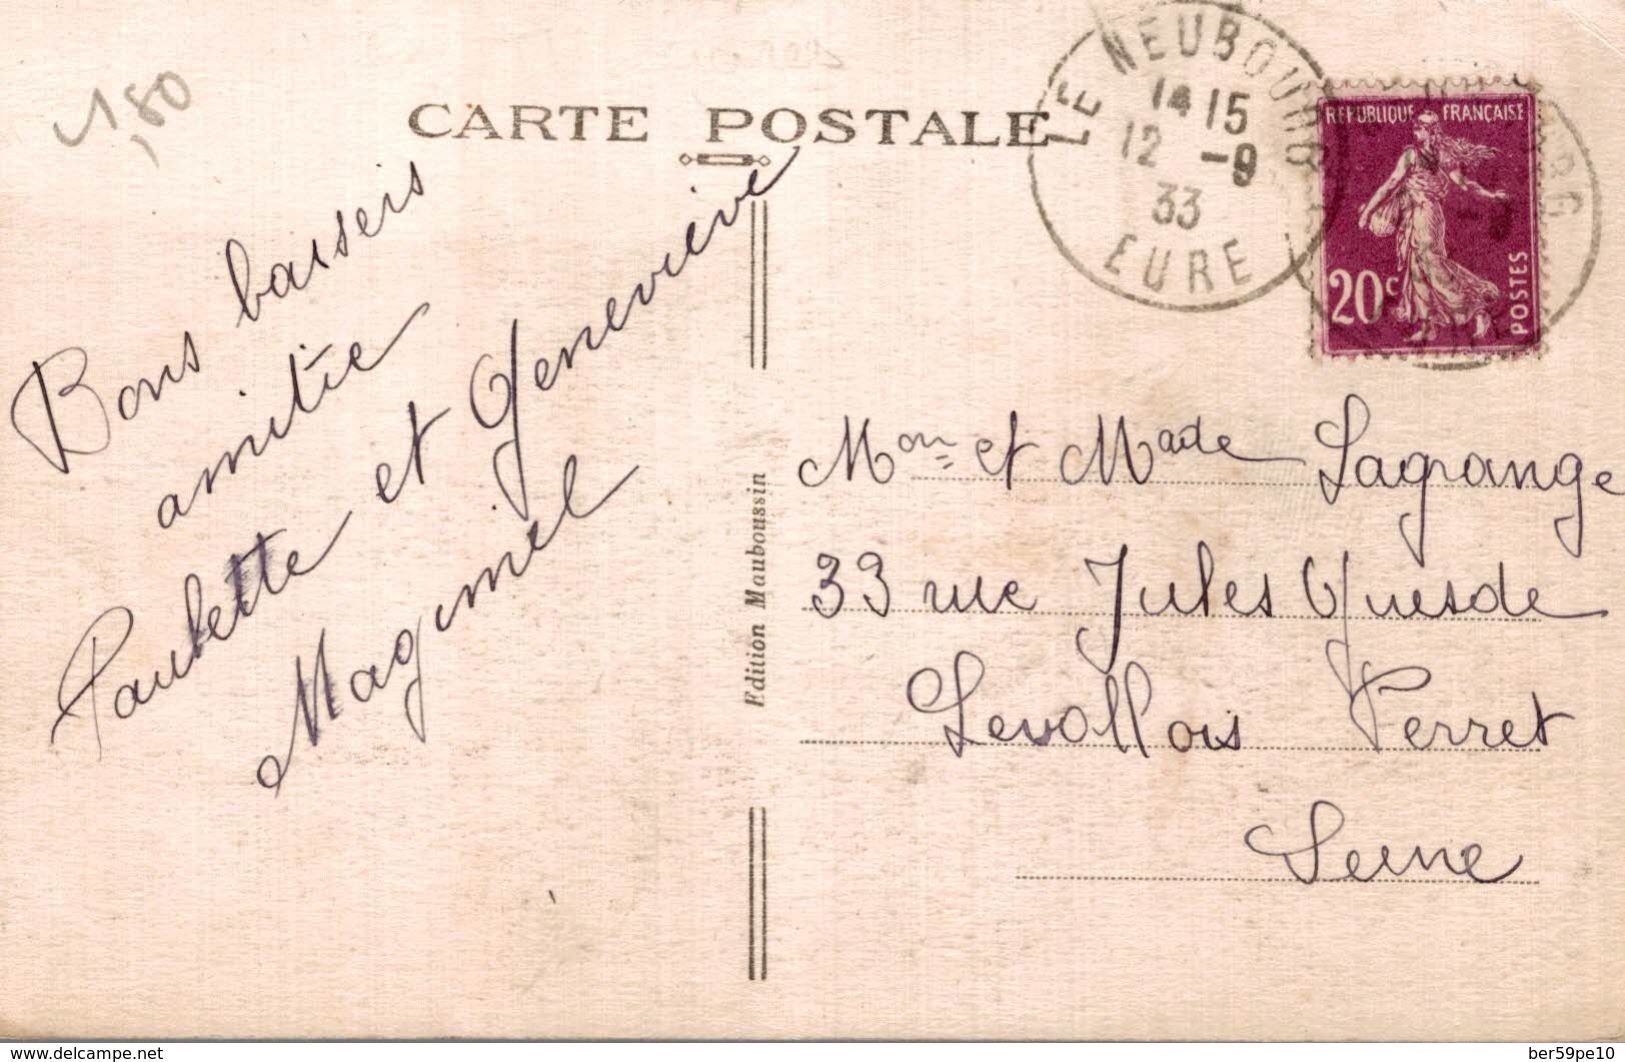 1,80
CARTE POSTALE
LE NEUBOURG
14 15
12 -9
33
EURE
REPUBLIQUE FRANÇAISE
20c
POSTES
Bons baisers
amitie
Paulette et Geneviève
Magimel
Edition Mauboussin
Mon et Made Lagrange
33 rue Jules Guesde
Levallois Perret
Seine
www.delcampe.net
ber59pe10